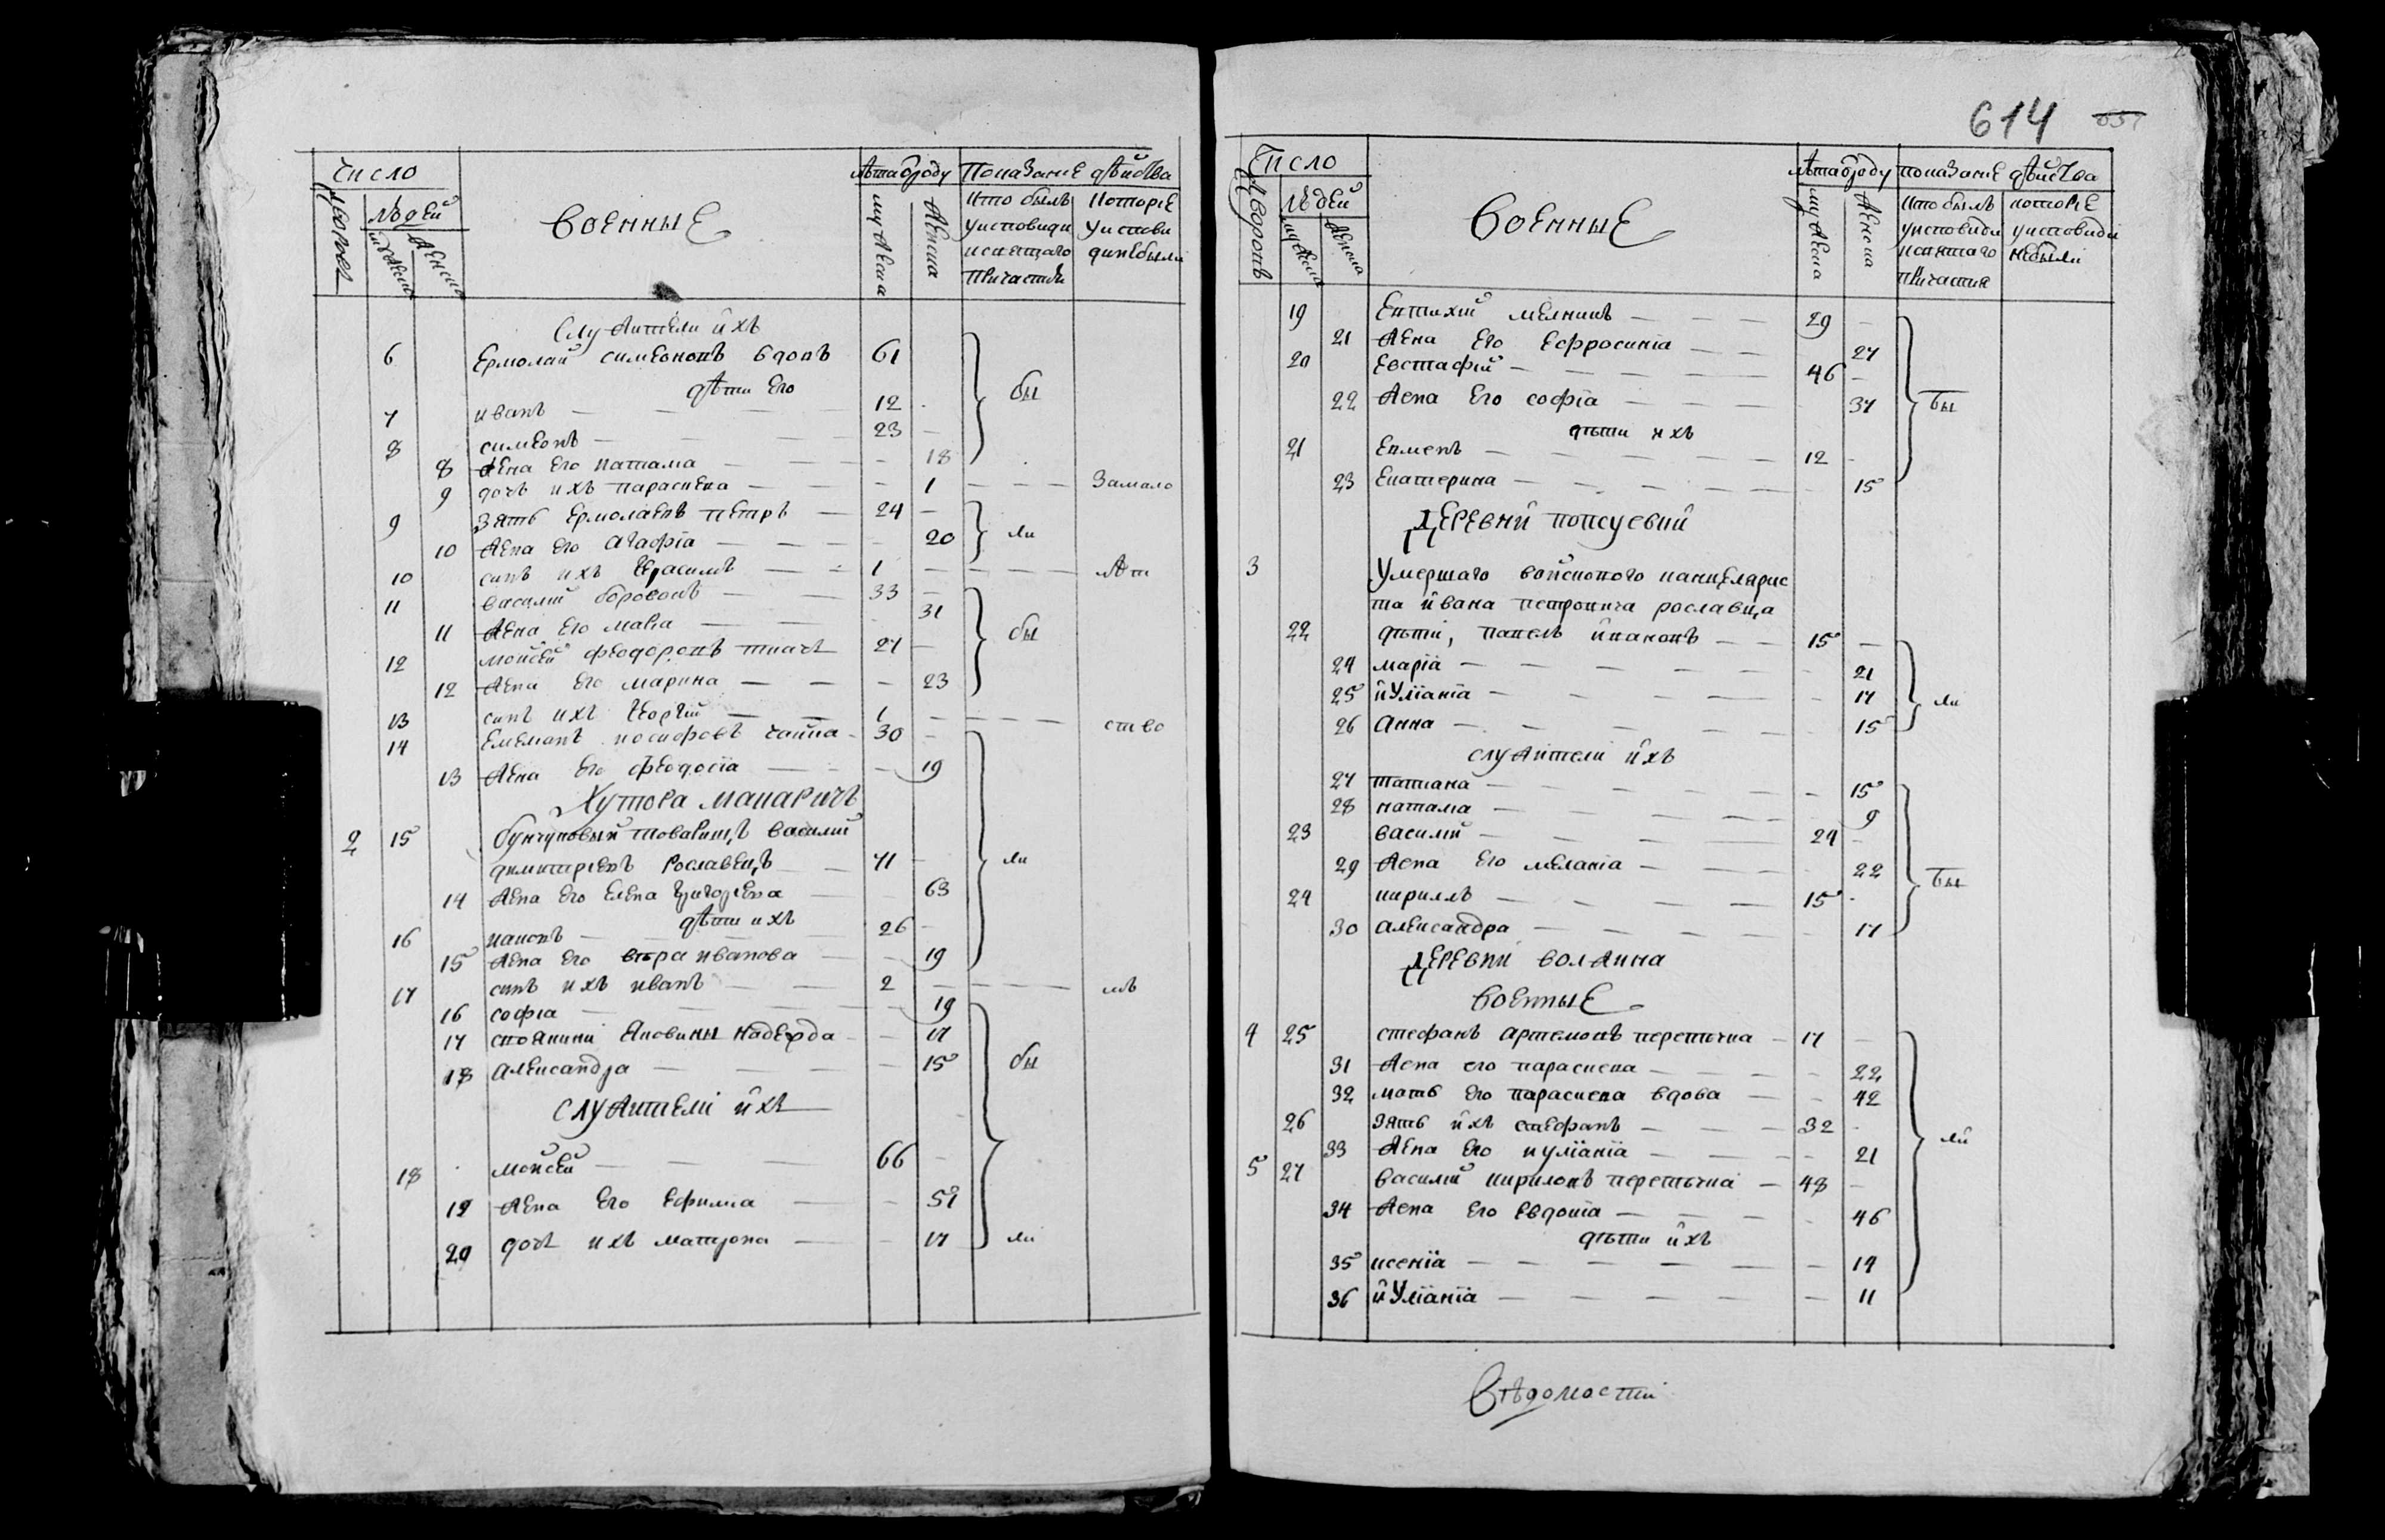 Число
Дворовъ
Людей
мужеска
женска
Военныѣ
Лѣта ѿ роду
мужеска
женска
Показание дѣйства
Кто былъ у исповиди и святаго причастия
Которїе у исповиди не были
Служители ихъ
6 Ермолай симеоновъ вдовъ 61
дѣти Его
7 иванъ — 12
8 симеонъ — 23
бы
8 жена Его наталя — 18
9 дочъ ихъ параскева — 1 — Замало
9 Зять Ермолаевъ петръ — 24
10 жена его агафїа — 20
ли
10 синъ ихъ Герасимъ — 1 — лѣт
11 василий боровокъ — 33
11 жена Его мавра — 31
бы
12 мойсей феодоровъ ткачъ 27
12 жена Его марина — 23
13 синъ ихъ Георгий — 1 — ство
14 Емелианъ иосифовъ чайка 30
13 жена Его феодосїа — 19
Хутора макаричъ
2 15 бунчуковый товарищъ василий
димитриевъ Рославецъ — 71
ли
14 жена Его Елена Григориева — 63
дѣти ихъ
16 иаковъ — 26
15 жена Его вѣра иванова — 19
17 синъ ихъ иванъ — 2 — мъ
16 софиа — 19
17 Надежда — 17
18 александра — 15
бы
служителі ихъ
18 мойсей — 66
19 жена Его Ефимиа — 57
20 дочъ ихъ матрона — 17
ли
614
657
Число
Дворовъ
Людей
мужеска
женска
Военныѣ
Лѣта ѿ роду
мужеска
женска
показание дѣйства
Кто былъ у исповиди и святаго причастия
которїе у исповиди небыли
19 Евтихий мелникъ — 29
21 жена Его Ефросиніа — 27
20 Евстафий — 46
22 жена Его софїа — 37
бы
дѣти ихъ
21 Климентъ — 12
23 Екатерина — 15
Деревнй попсуевий
3 Умершаго войскового канцелярис
та ивана петровича рославца
22 дѣти, павелъ иваковъ — 15
24 марїа — 21
25 иулїанїа — 17
ли
26 Анна — 15
служители ихъ
27 татиана — 15
28 наталиа — 9
23 василий — 24
29 жена Его меланїа — 22
бы
24 кириллъ — 15
30 александра — 17
Деревни волжина
Военныѣ
4 25 стефанъ артемовъ перетычка — 17
31 жена его параскева — 22
32 мать Его параскева вдова — 42
26 зять ихъ стефанъ — 32
ли
33 жена Его иулїанїа — 21
5 27 василий кириловъ перетычка — 48
34 жена Его Евдокїа — 46
дѣти ихъ
35 ксенїа — 14
36 иулїанїа — 11
Вѣдомости